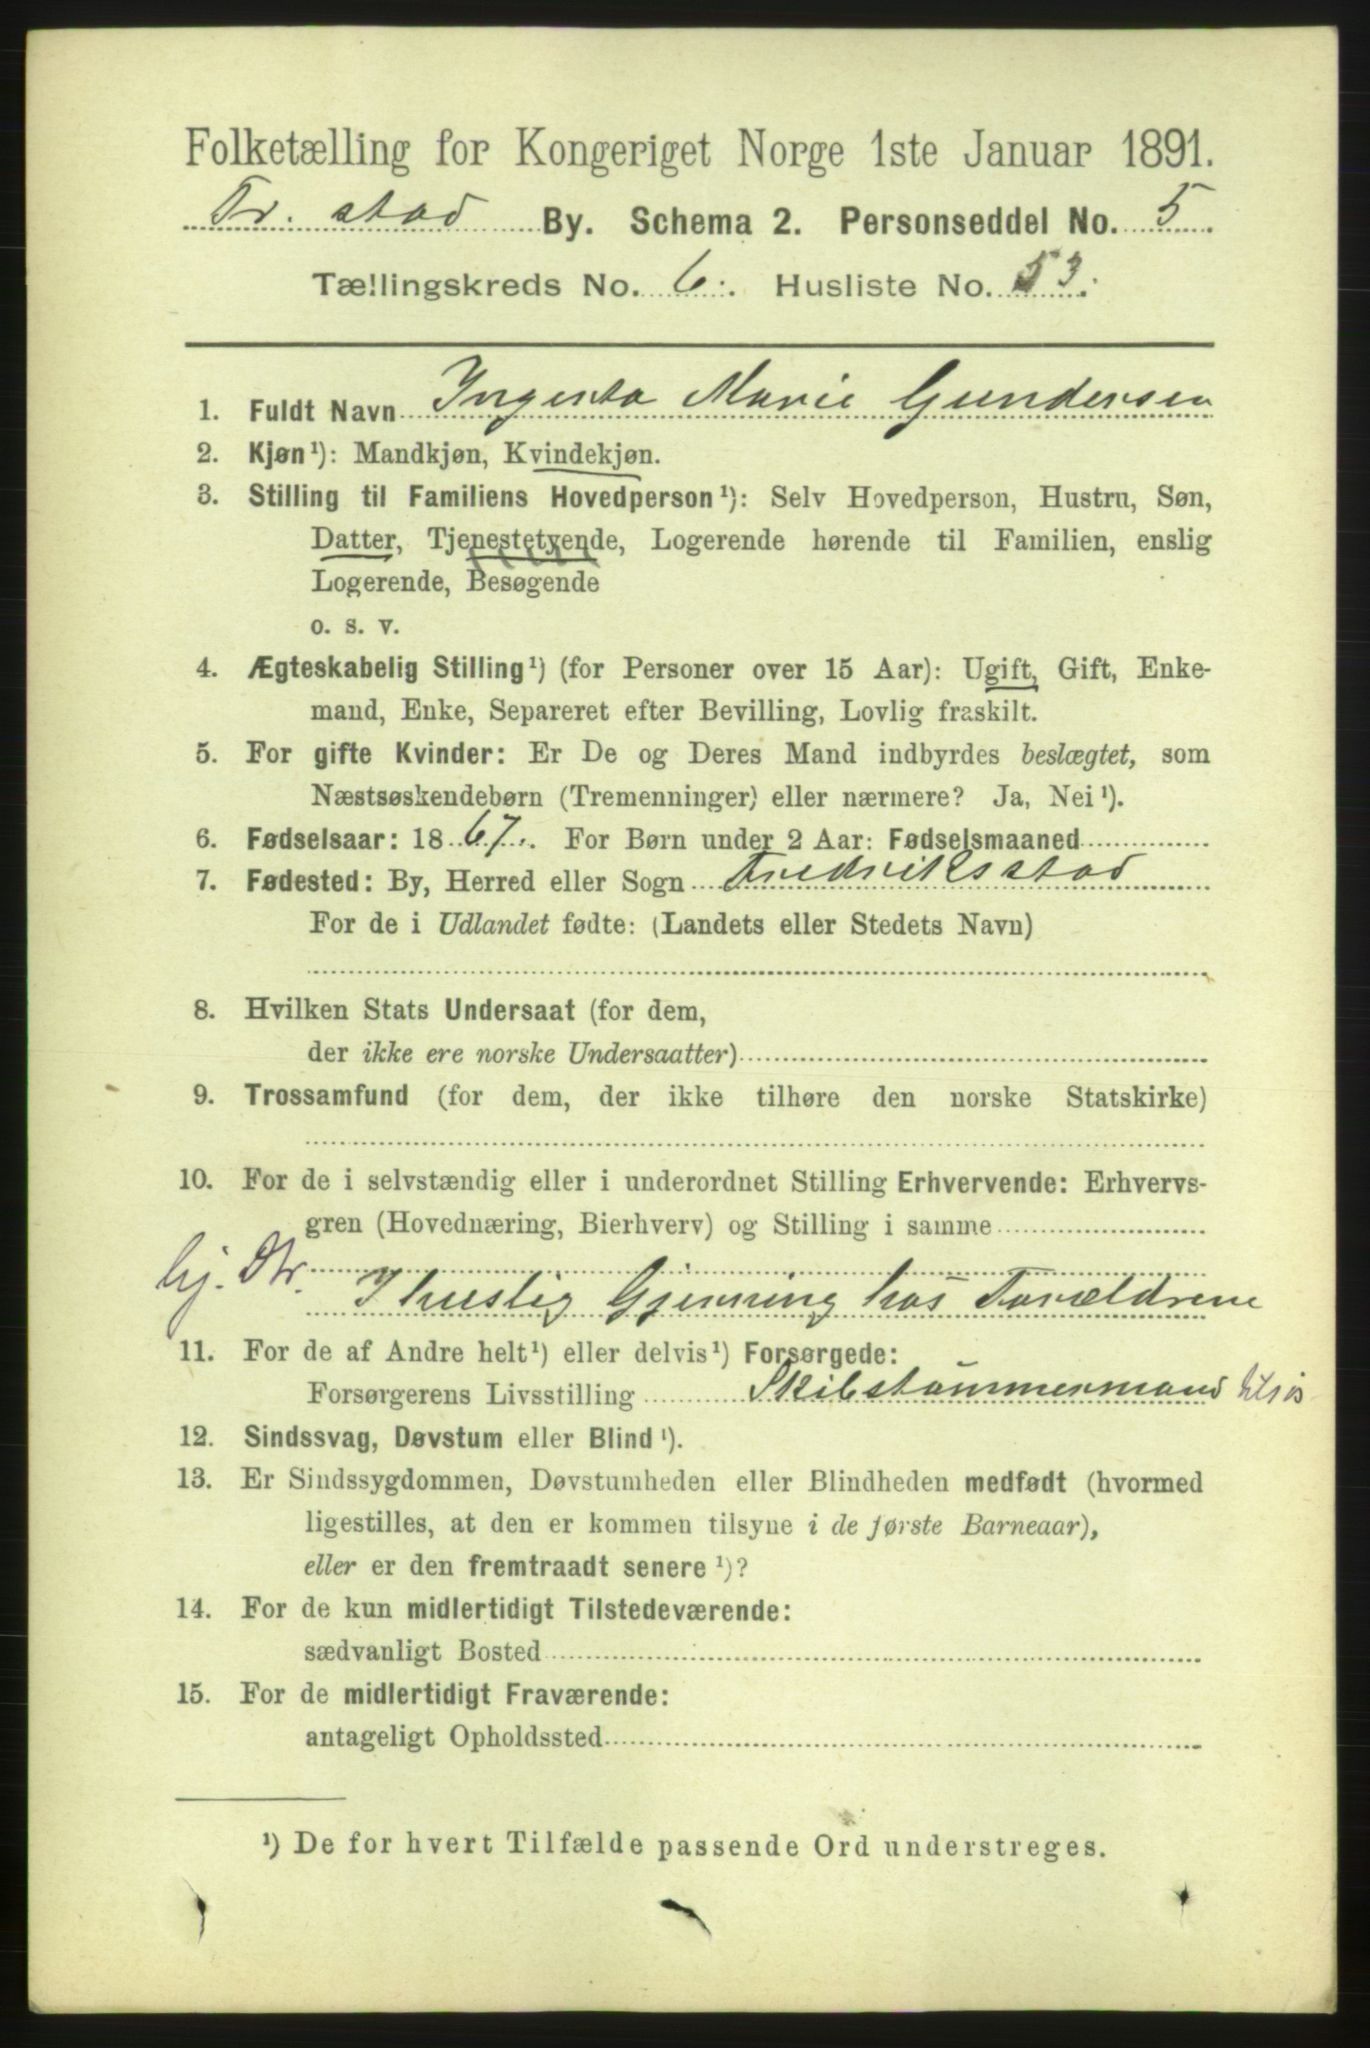 Folketælling for Kongeriget Norge 1ste Januar 1891.
Fr. stad By. Schema 2. Personseddel No. 5.
Tællingskreds No. 6. Husliste No. 53.
1. Fuldt Navn Ingerta Marie Gundersen
2. Kjøn¹): Mandkjøn, Kvindekjøn.
3. Stilling til Familiens Hovedperson¹): Selv Hovedperson, Hustru, Søn,
Datter, Tjenestetyende, Logerende hørende til Familien, enslig
Logerende, Besøgende
o. s. v.
4. Ægteskabelig Stilling¹) (for Personer over 15 Aar): Ugift, Gift, Enke-
mand, Enke, Separeret efter Bevilling, Lovlig fraskilt.
5. For gifte Kvinder: Er De og Deres Mand indbyrdes beslægtet, som
Næstsøskendebørn (Tremenninger) eller nærmere? Ja, Nei¹).
6. Fødselsaar: 1867. For Børn under 2 Aar: Fødselsmaaned
7. Fødested: By, Herred eller Sogn Fredriksstad
For de i Udlandet fødte: (Landets eller Stedets Navn)
8. Hvilken Stats Undersaat (for dem,
der ikke ere norske Undersaatter)
9. Trossamfund (for dem, der ikke tilhøre den norske Statskirke)
10. For de i selvstændig eller i underordnet Stilling Erhvervende: Erhvervs-
gren (Hovednæring, Bierhverv) og Stilling i samme
hj. Dtr.
I huslig Gjerning hos Forældrene
11. For de af Andre helt¹) eller delvis¹) Forsørgede:
Forsørgerens Livsstilling Skibstømmermand
12. Sindssvag, Døvstum eller Blind¹).
13. Er Sindssygdommen, Døvstumheden eller Blindheden medfødt (hvormed
ligestilles, at den er kommen tilsyne i de første Barneaar),
eller er den fremtraadt senere¹)?
14. For de kun midlertidigt Tilstedeværende:
sædvanligt Bosted
15. For de midlertidigt Fraværende:
antageligt Opholdssted
¹) De for hvert Tilfælde passende Ord understreges.